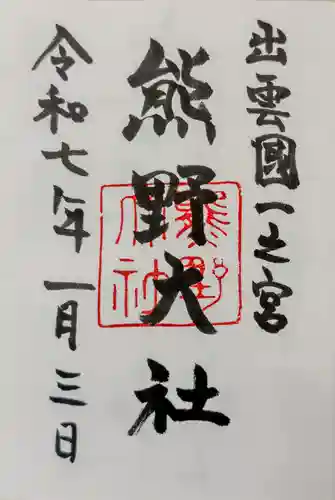 出雲國一之宮
熊野大社
令和七年一月三日
熊野大社